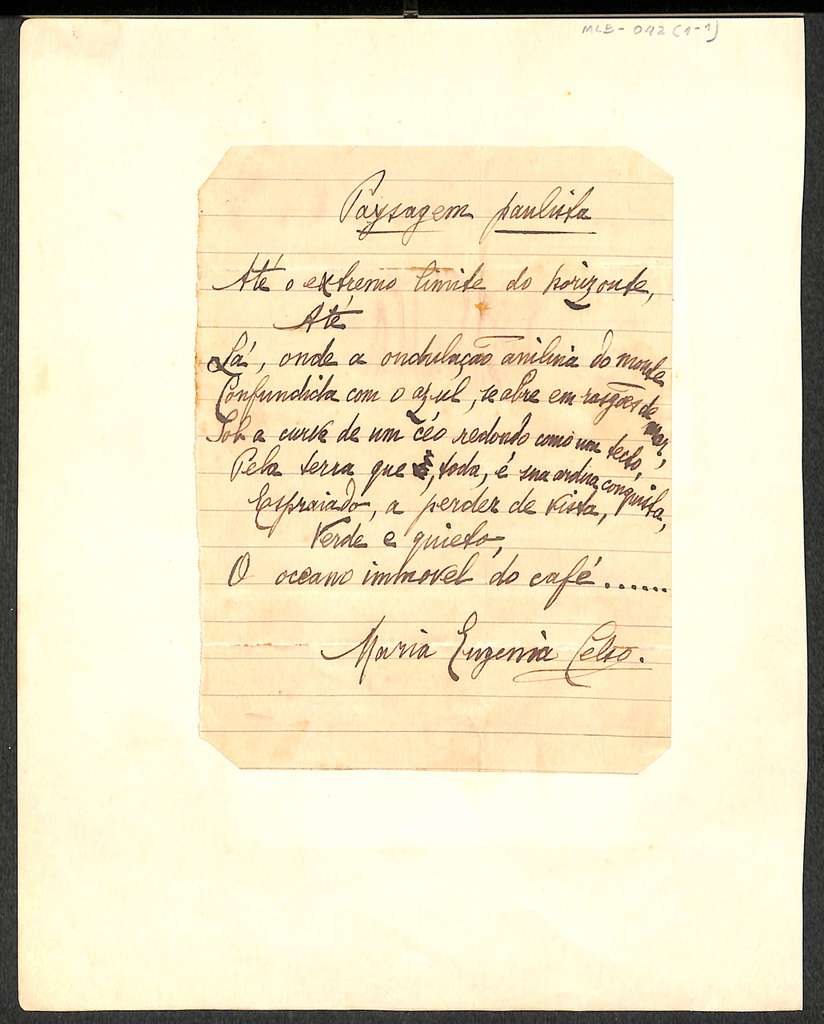 MLB-042 (1-1)
Paysagem paulista
Até o extremo limite do horizonte,
Até
Lá, onde a ondulação anilina do monte
Confundida com o azul, se abre em rasgões de mar,
Sob a curva de um céo redondo como um tecto,
Pela terra que, toda, é sua ardua conquista,
Espraiado, a perder de vista,
Verde e quieto,
O oceano immovel do café......
Maria Eugenia Celso.